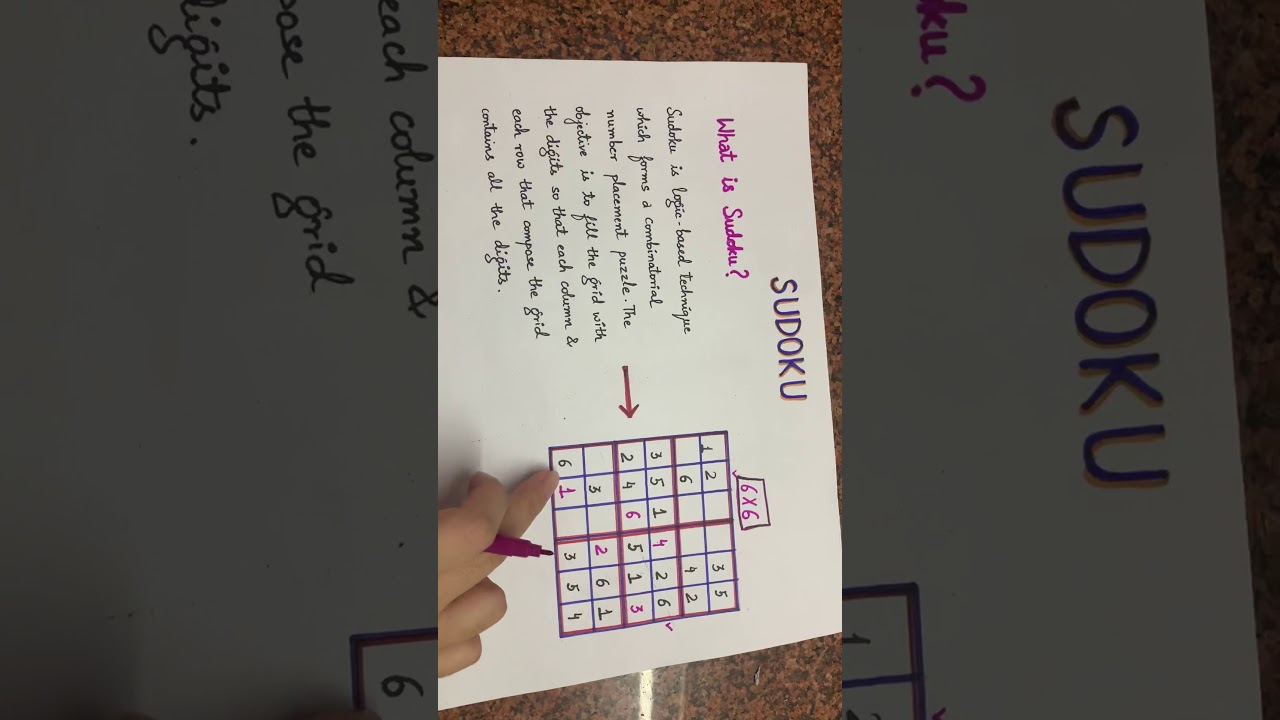 SUDOKU
What is Sudoku?
Sudoku is logic-based technique
which forms a combinatorial
number placement puzzle. The
objective is to fill the grid with
the digits so that each column &
each row that compose the grid
contains all the digits.
6X6
1 2 3 5
6 4 2
3 5 1 4 2 6
2 4 6 5 1 3
3 2 6 1
6 1 3 5 4